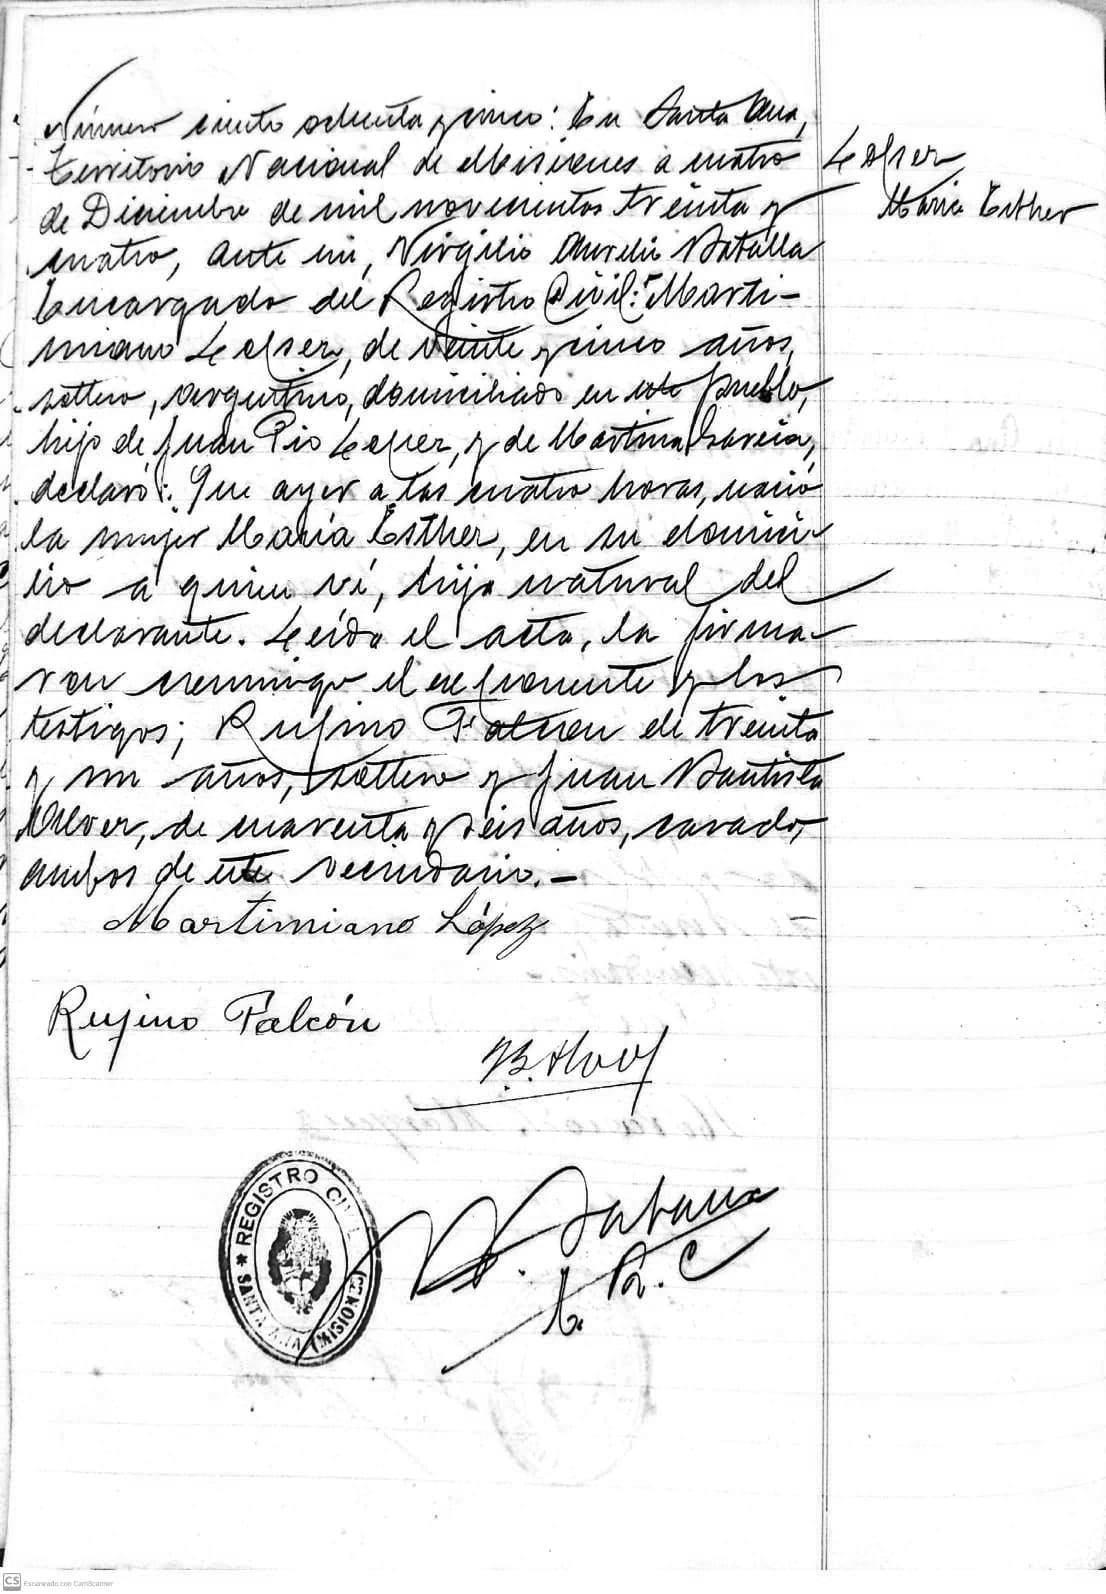 Número ciento setenta y cinco: En Santa Ana,
Territorio Nacional de Misiones a cuatro
de Diciembre de mil novecientos treinta y
cuatro, ante mi, Virgilio Aurelio Batalla
Encargado del Registro Civil: Marti-
miano Lopez, de veinte y cinco años,
soltero, argentino, domiciliado en este pueblo,
hijo de Juan Pio Lopez, y de Martina Garcia,
declaró: Que ayer a las cuatro horas, nació
la mujer María Esther, en su domici-
lio a quien ví, hija natural del
declarante. Leída el acta, la firma-
ron conmigo el exponente y los
testigos; Rufino Falcon de treinta
y un años, soltero y Juan Bautista
de cuarenta y seis años, casado,
ambos de este vecindario.—
Lopez
María Esther
Martimiano López
Rufino Falcón
B.
E. R. C
* REGISTRO CIVIL *
SANTA ANA (MISIONES)
CS Escaneado con CamScanner